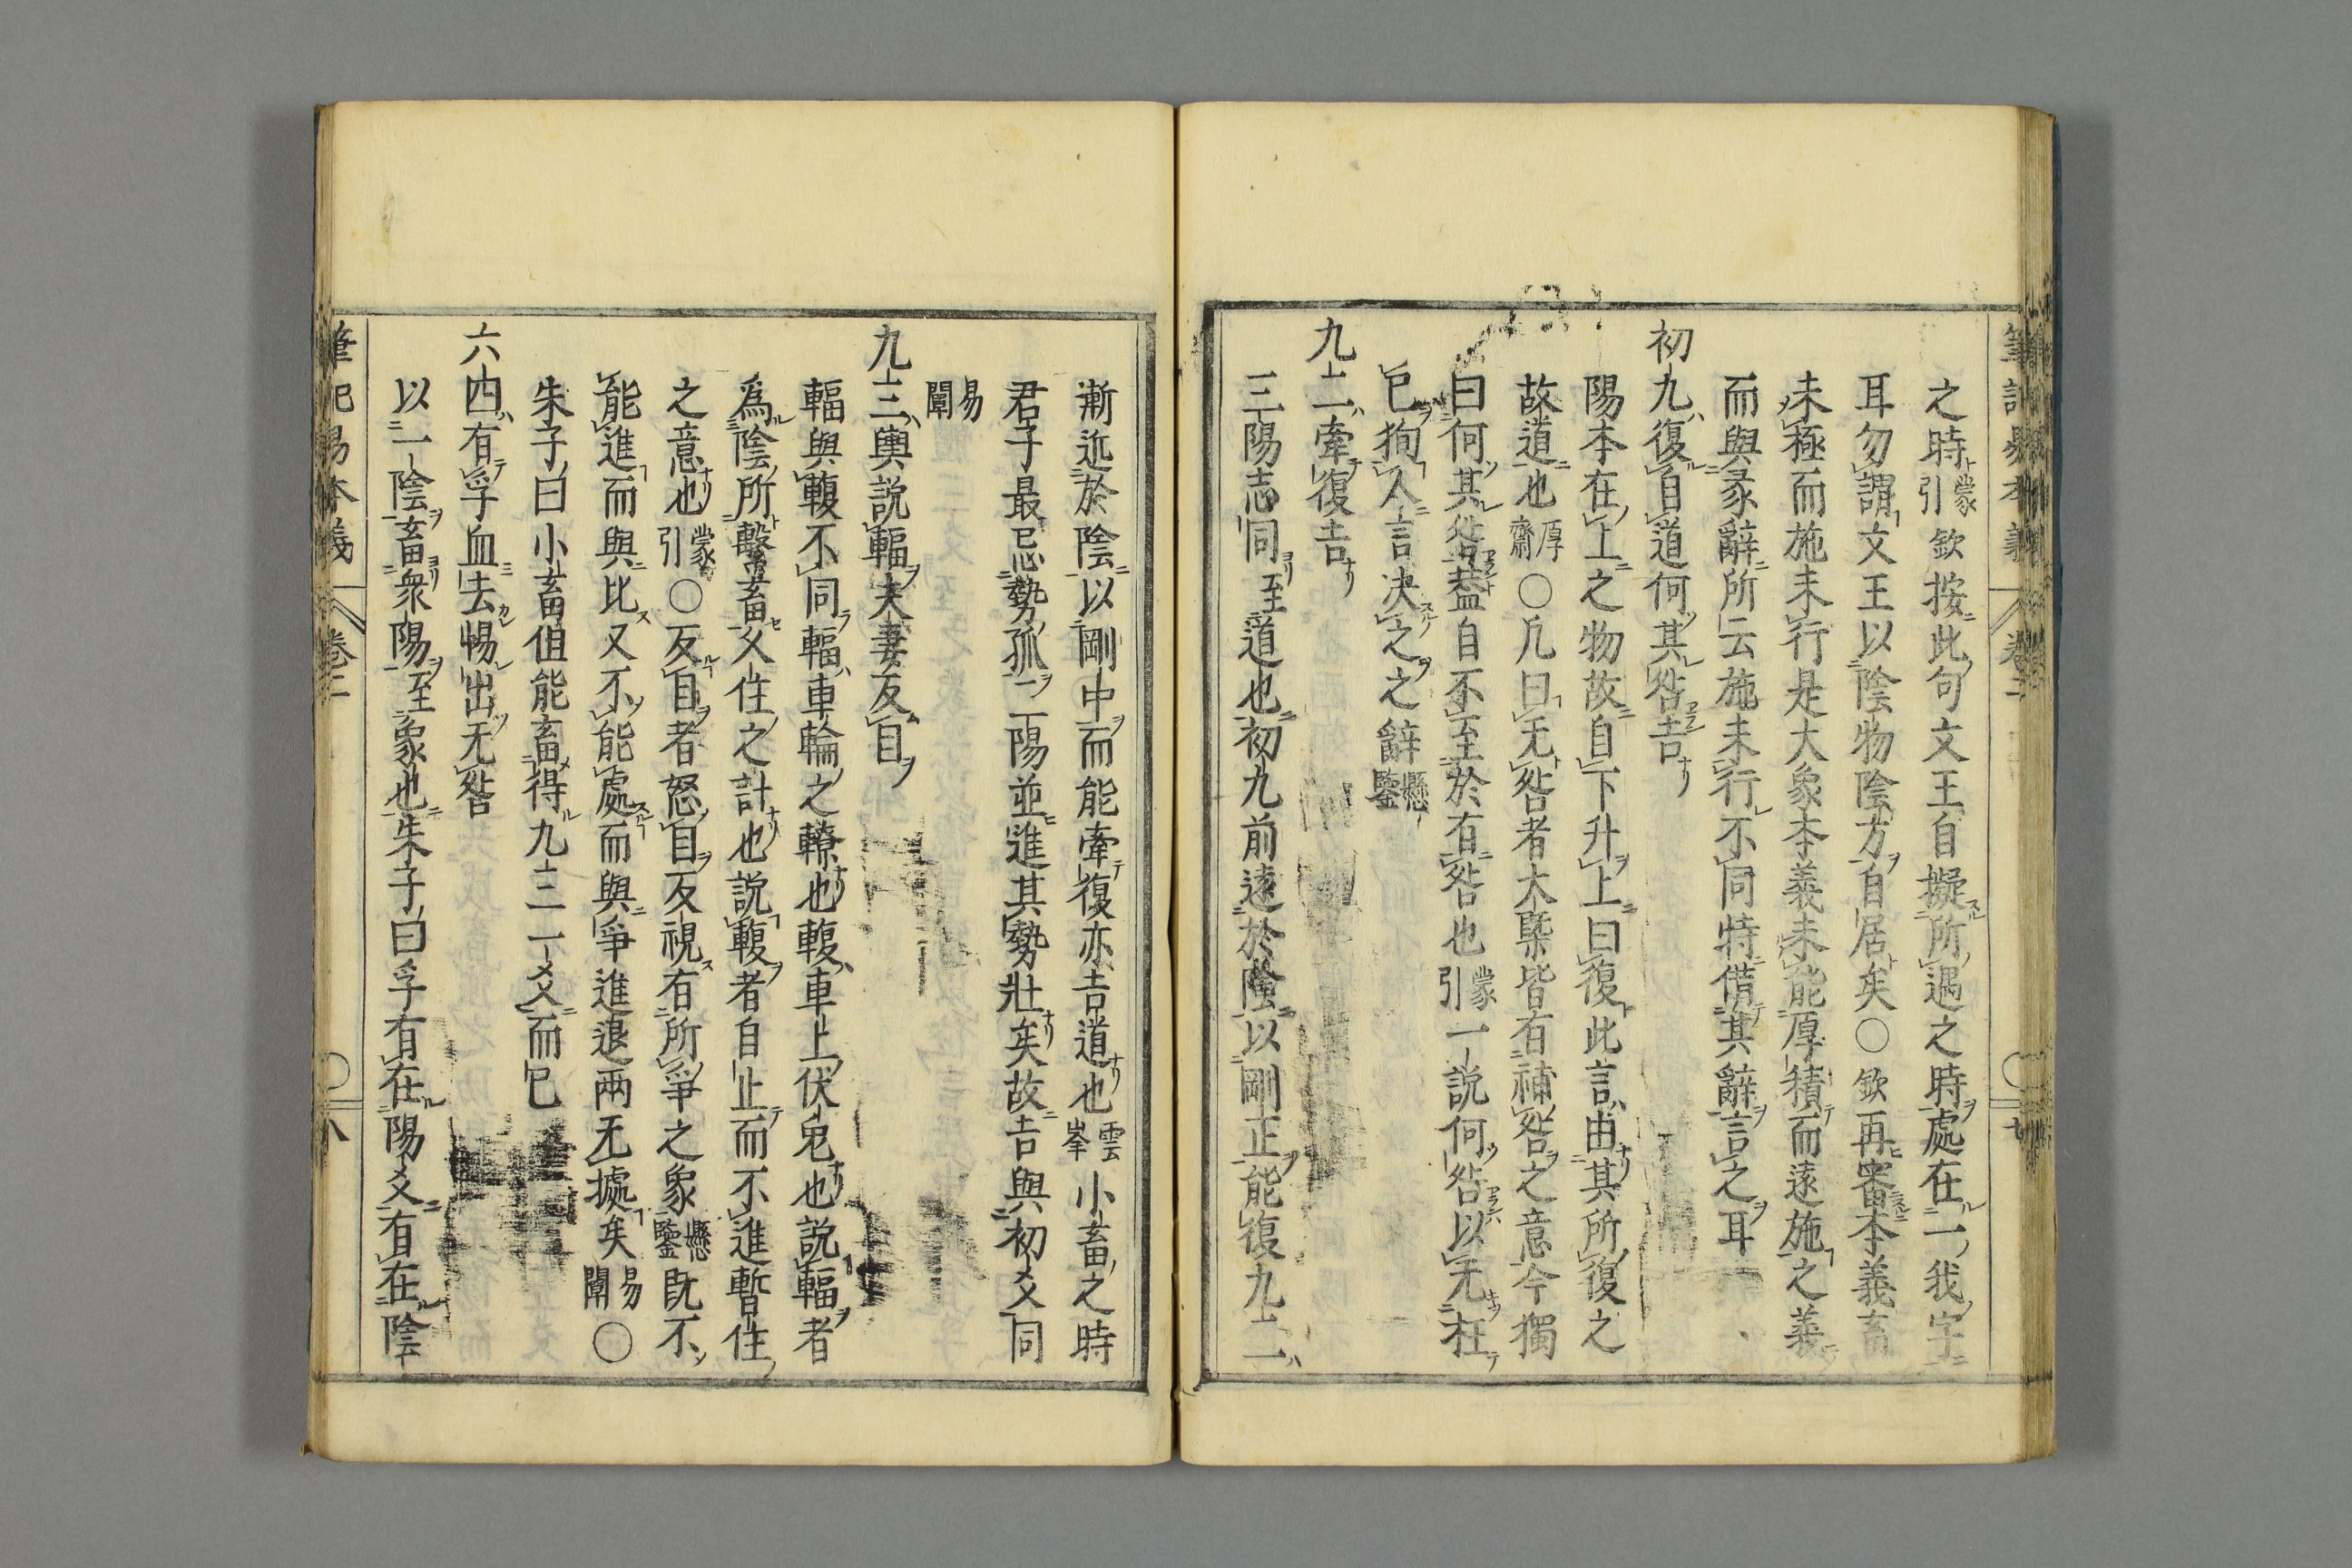 之時蒙引欽按此句文王自擬所遇之時處在一我字
耳勿謂文王以陰物陰方自居矣○欽再審本義畜
未極而施未行是大象本義未能厚積而遠施之義
而與彖辭所云施未行不同特借其辭言之耳
初九復自道何其咎吉
陽本在上之物故自下升上曰復此言由其所復之
故道也厚齋○凡曰无咎者大槩皆有補咎之意今獨
曰何其咎葢自不至於有咎也蒙引一説何咎以无枉
已狥人言决之之辭懸鑒
九二牽復吉
三陽志同至道也初九前遠於陰以剛正能復九二
漸近於陰以剛中而能牽復亦吉道也雲峯小畜之時
君子最忌勢孤二陽並進其勢壯矣故吉與初爻同
易闡
九三輿説輻夫妻反目
輻與輹不同輻車輪之轑也輹車上伏兔也説輻者
爲陰所繫畜久住之計也説輹者自止而不進暫住
之意也蒙引○反目者怒目反視有所爭之象懸鑒既不
能進而與比又不能處而與爭進退兩无據矣易闡○
朱子曰小畜但能畜得九三一爻而已
六四有孚血去惕出无咎
以一陰畜衆陽至象也朱子曰孚有在陽爻有在陰
筆記易本義 卷二 七
筆記易本義 卷二 八